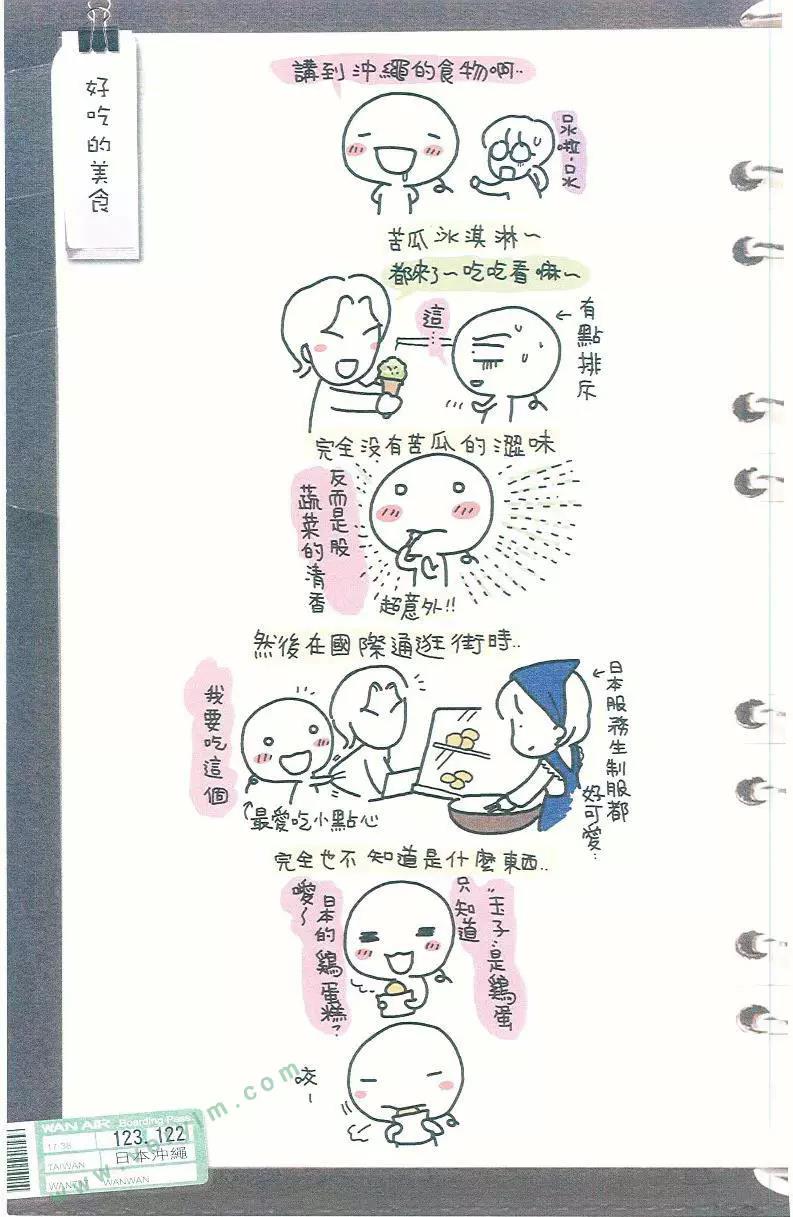 好吃的美食
講到沖繩的食物啊..
口水啦.口水
苦瓜冰淇淋～
都來了～吃吃看嘛～
這…
←有點排斥
完全沒有苦瓜的澀味
反而是股
蔬菜的清香
超意外!!
然後在國際通逛街時..
我要吃這個
最愛吃小點心
←日本服務生制服都
好可愛…
完全也不知道是什麼東西..
只知道
"玉子"是鷄蛋
噯～
日本的鷄蛋糕?
咬～
WAN AIR Boarding Pass
17:38
123. 122
TAIWAN
日本沖繩
WANWAN